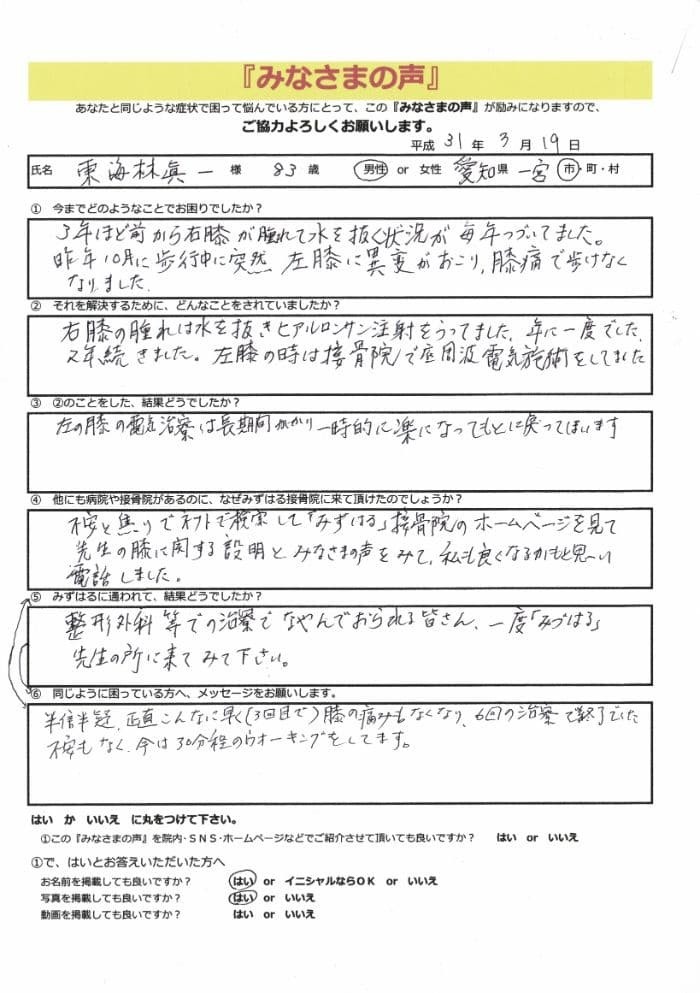 『みなさまの声』
あなたと同じような症状で困って悩んでいる方にとって、この『みなさまの声』が励みになりますので、
ご協力よろしくお願いします。
平成 31 年 3 月 19 日
氏名 東海林眞一 様 83 歳 男性 or 女性 愛知県 一宮 市・町・村
① 今までどのようなことでお困りでしたか？
3年ほど前から右膝が腫れて水を抜く状況が毎年つづいてました。
昨年10月に歩行中に突然 左膝に異変がおこり、膝痛で歩けなく
なりました。
② それを解決するために、どんなことをされていましたか？
右膝の腫れは水を抜きヒアルロンサン注射をうってました。年に一度でした
2年続きました。左膝の時は接骨院で周波電気施術をしてました
③ ②のことをした、結果どうでしたか？
左の膝の電気治療は長期間かかり一時的に楽になってもとに戻ってしまいます
④ 他にも病院や接骨院があるのに、なぜみずはる接骨院に来て頂けたのでしょうか？
不安と焦りでネットで検索して「みずはる」接骨院のホームページを見て
先生の膝に関する説明とみなさまの声をみて、私も良くなるかもと思い
電話しました。
⑤ みずはるに通われて、結果どうでしたか？
整形外科等での治療でなやんでおられる皆さん、一度「みづはる」
先生の所に来てみて下さい。
⑥ 同じように困っている方へ、メッセージをお願いします。
半信半疑、正直こんなに早く(3回目で)膝の痛みもなくなり、6回の治療で終了でした
不安もなく、今は30分程のウオーキングをしてます。
はい か いいえ に丸をつけて下さい。
①この『みなさまの声』を院内・SNS・ホームページなどでご紹介させて頂いても良いですか？ はい or いいえ
①で、はいとお答えいただいた方へ
お名前を掲載しても良いですか？ はい or イニシャルならOK or いいえ
写真を掲載しても良いですか？ はい or いいえ
動画を掲載しても良いですか？ はい or いいえ